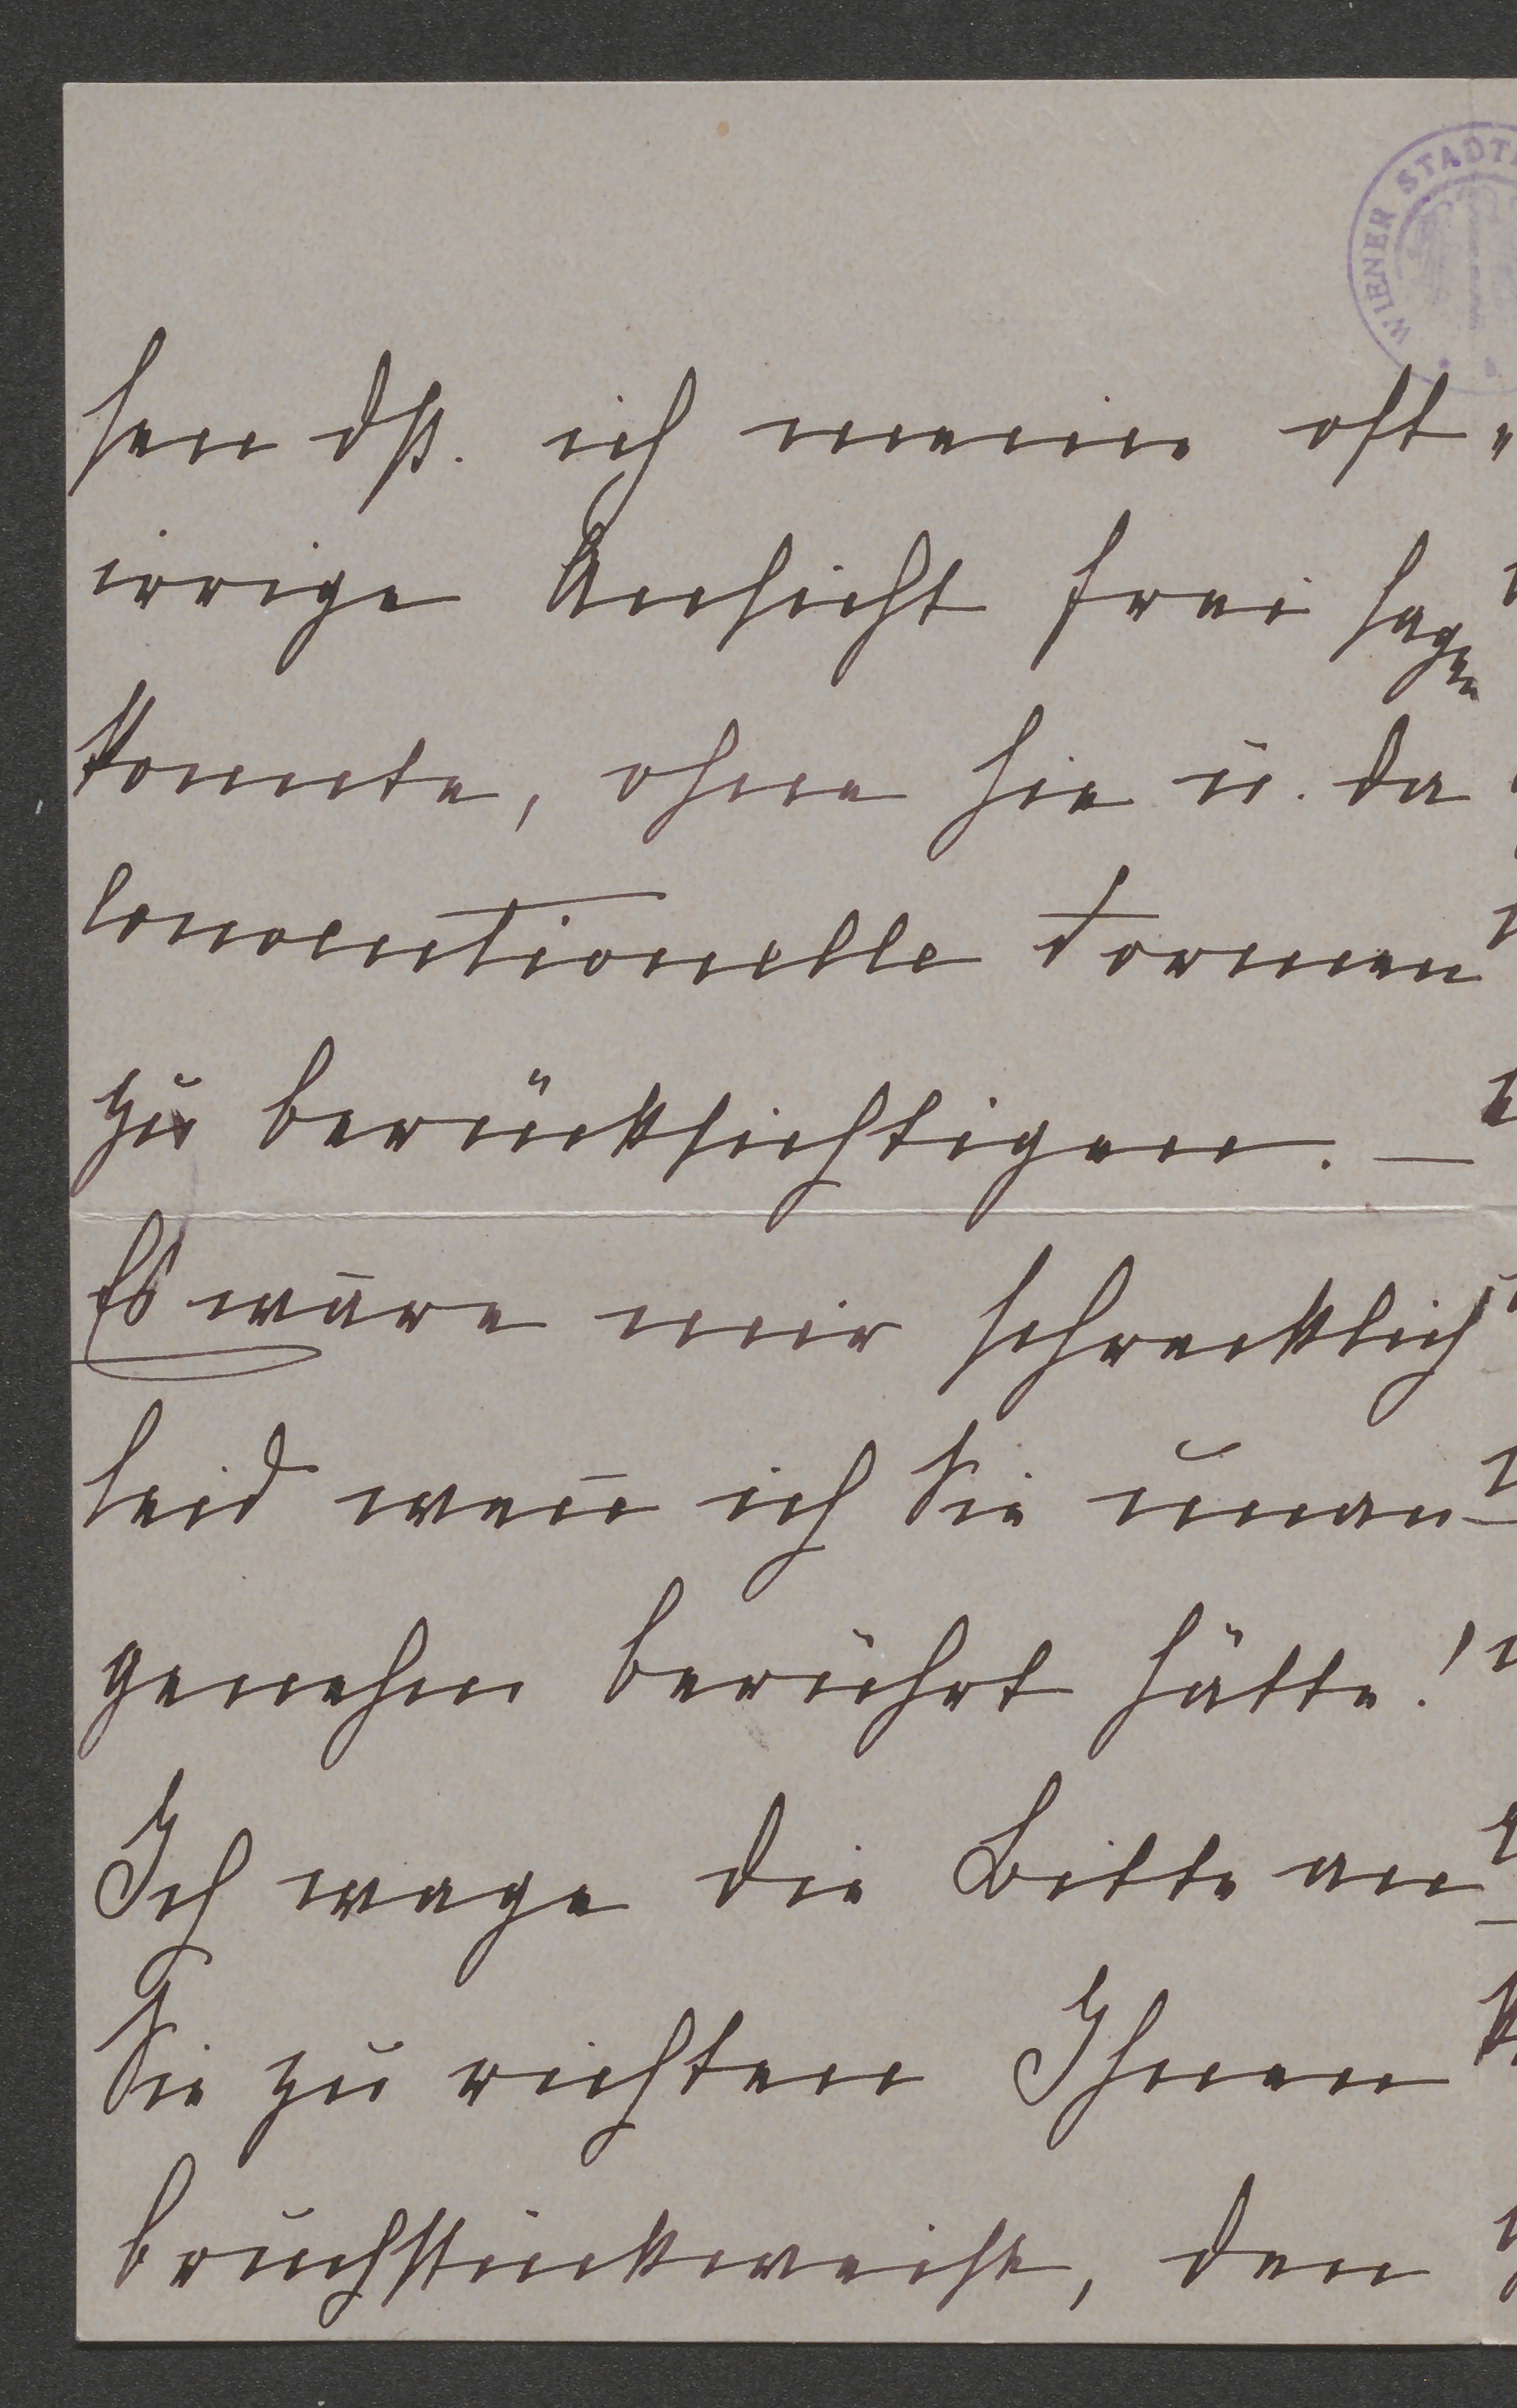 WIENER STADT
sen dß. ich meine oft
irrige Ansicht frei sagen
konnte, ohne hie u. da
conventionelle Formen
zu berücksichtigen. —
Es wäre mir schrecklich
leid wen̅ ich Sie unan-
genehm berührt hätte!
Ich wage die Bitte an
Sie zu richten Ihnen
bruchstückweise, den